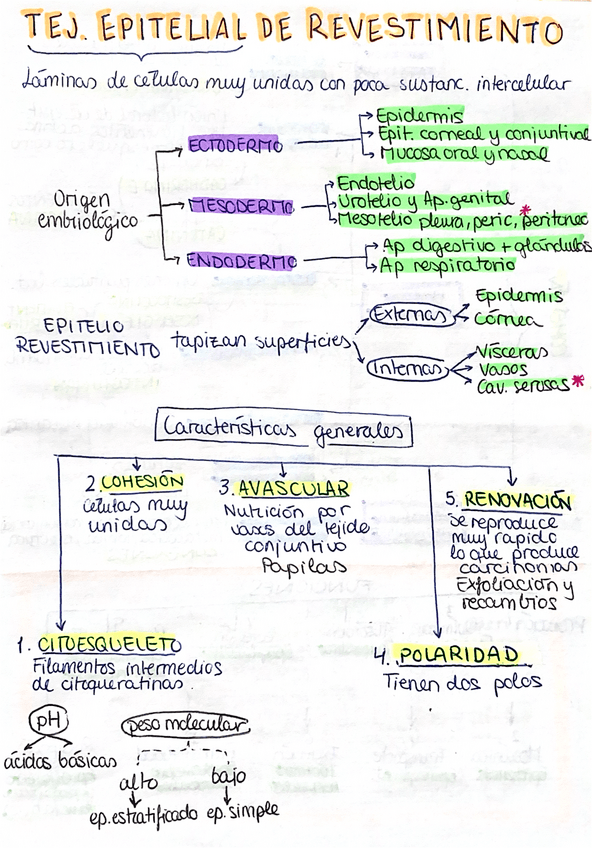 TEJ. EPITELIAL DE REVESTIMIENTO
Láminas de células muy unidas con poca sustanc. intercelular
Origen
embriológico
ECTODERMO
Epidermis
Epit. corneal y conjuntival
Mucosa oral y nasal
MESODERMO
Endotelio
Urotelio y Ap. genital
Mesotelio pleura, peric, peritoneo *
ENDODERMO
Ap digestivo + glándulas
Ap respiratorio
EPITELIO
REVESTIMIENTO
tapizan superficies
Externas
Epidermis
Córnea
Internas
Vísceras
Vasos
Cav. serosas *
Características generales
2. COHESIÓN
células muy
unidas
3. AVASCULAR
Nutrición por
vasos del tejido
conjuntivo
Papilas
5. RENOVACIÓN
se reproduce
muy rapido
lo que produce
carcinomas
Exfoliación y
recambios
1. CITOESQUELETO
Filamentos intermedios
de citoqueratinas.
4. POLARIDAD
Tienen dos polos
pH
ácidos básicas
peso molecular
alto
bajo
ep. estratificado
ep. simple